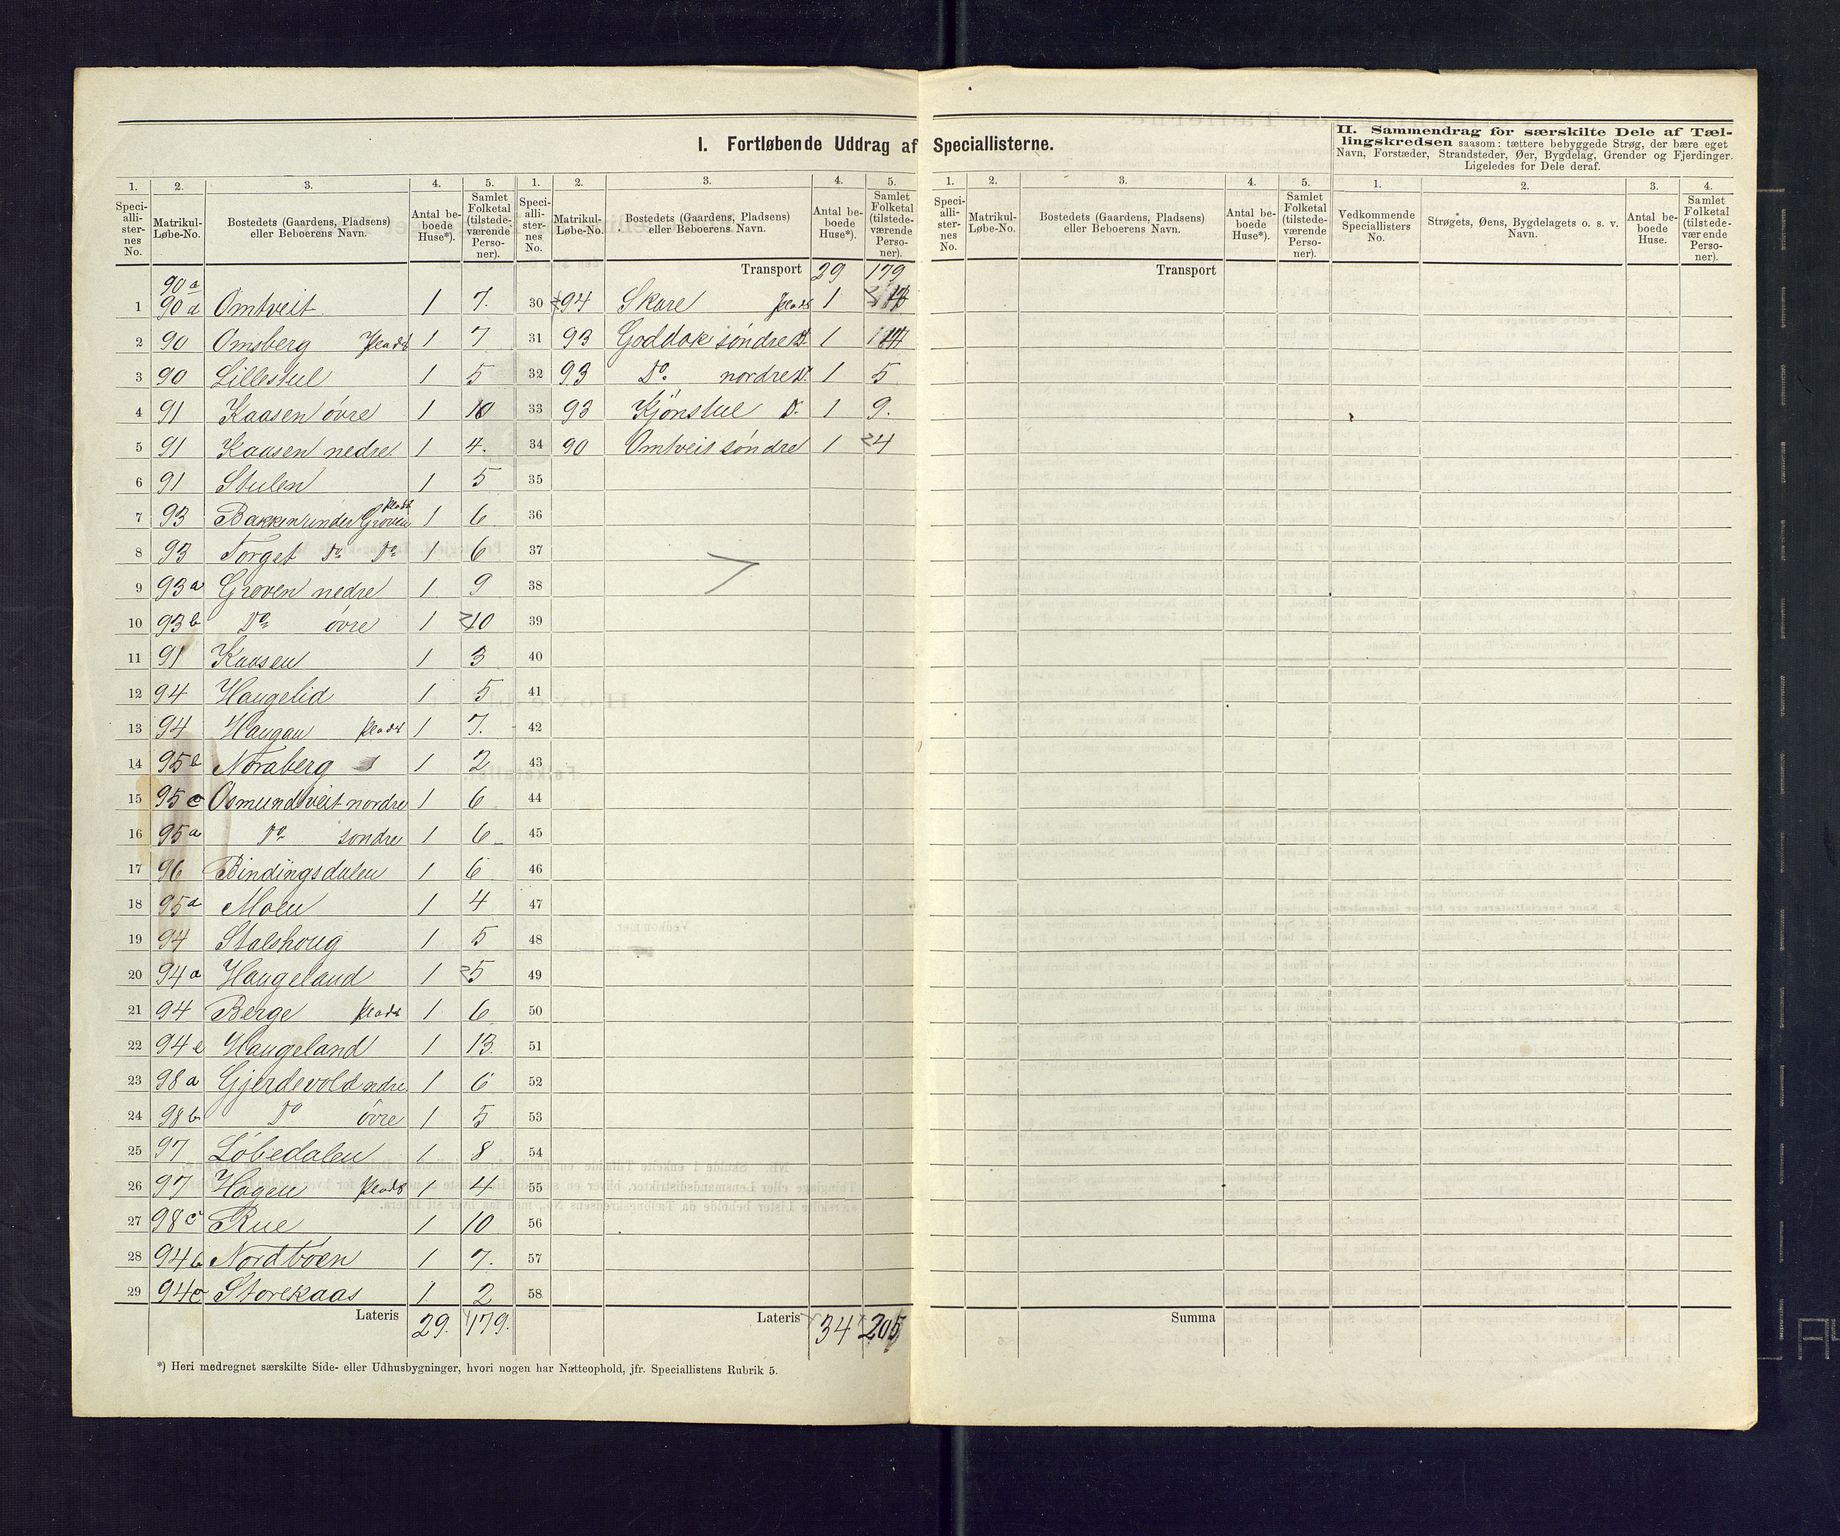 I. Fortløbende Uddrag af Speciallisterne.
II. Sammendrag for særskilte Dele af Tæl-
lingskredsen saasom: tættere bebyggede Strøg, der bære eget
Navn, Forstæder, Strandsteder, Øer, Bygdelag, Grender og Fjerdinger.
Ligeledes for Dele deraf.
1. 2. 3. 4. 5. 1. 2. 3. 4. 5. 1. 2. 3. 4. 5. 1. 2. 3. 4.
Speci-alli-ster-nes No. Matrikul-Løbe-No. Bostedets (Gaardens, Pladsens) eller Beboerens Navn. Antal be-boede Huse*). Samlet Folketal (tilstede-værende Perso-ner).
Speci-alli-ster-nes No. Matrikul-Løbe-No. Bostedets (Gaardens, Pladsens) eller Beboerens Navn. Antal be-boede Huse*). Samlet Folketal (tilstede-værende Perso-ner).
Speci-alli-ster-nes No. Matrikul-Løbe-No. Bostedets (Gaardens, Pladsens) eller Beboerens Navn. Antal be-boede Huse*). Samlet Folketal (tilstede-værende Perso-ner).
Vedkommende Speciallisters No. Strøgets, Øens, Bygdelagets o. s. v. Navn. Antal be-boede Huse. Samlet Folketal (tilstede-værende Perso-ner).
90a
1 90d Omtveit 1 7.
2 90 Omsberg Plads 1 7
3 90 Lillestul 1 5
4 91 Kaasen øvre 1 10
5 91 Kaasen nedre 1 4.
6 91 Stulen 1 5
7 93 Bakken under Groven Plads 1 6
8 93 Torget Do Do 1 6
9 93a Groven nedre 1 9
10 93b Do øvre 1 10
11 91 Kaasen 1 3
12 94 Haugelid 1 5
13 94 Haugan Plads 1 7.
14 95b Noraberg 1 2
15 95c Osmundtveit nordre 1 6
16 95a Do søndre 1 6
17 96 Bindingsdalen 1 6
18 95a Moen 1 4
19 94 Stalshoug 1 5
20 94a Haugeland 1 5
21 94 Berge Plads 1 6
22 94e Haugeland 1 13.
23 98a Gjerdevold nedre 1 6
24 98b Do øvre 1 5
25 97 Løbedalen 1 8
26 97 Hagen Plads 1 4
27 98c Rue 1 10
28 94b Nordbøen 1 7.
29 94c Storekaas 1 2
Lateris 29. 179.
Transport 29 179
30 94 Skare Plads 1
31 93 Goddok søndre D. 1
32 93 Do. nordre D. 1 5
33 93 Kjønstul D. 1 9.
34 90 Omtveit søndre 1 4
35
36
37
38
39
40
41
42
43
44
45
46
47
48
49
50
51
52
53
54
55
56
57
58
Lateris 34 205
Transport
Summa
*) Heri medregnet særskilte Side- eller Udhusbygninger, hvori nogen har Natteophold, jfr. Speciallistens Rubrik 5.